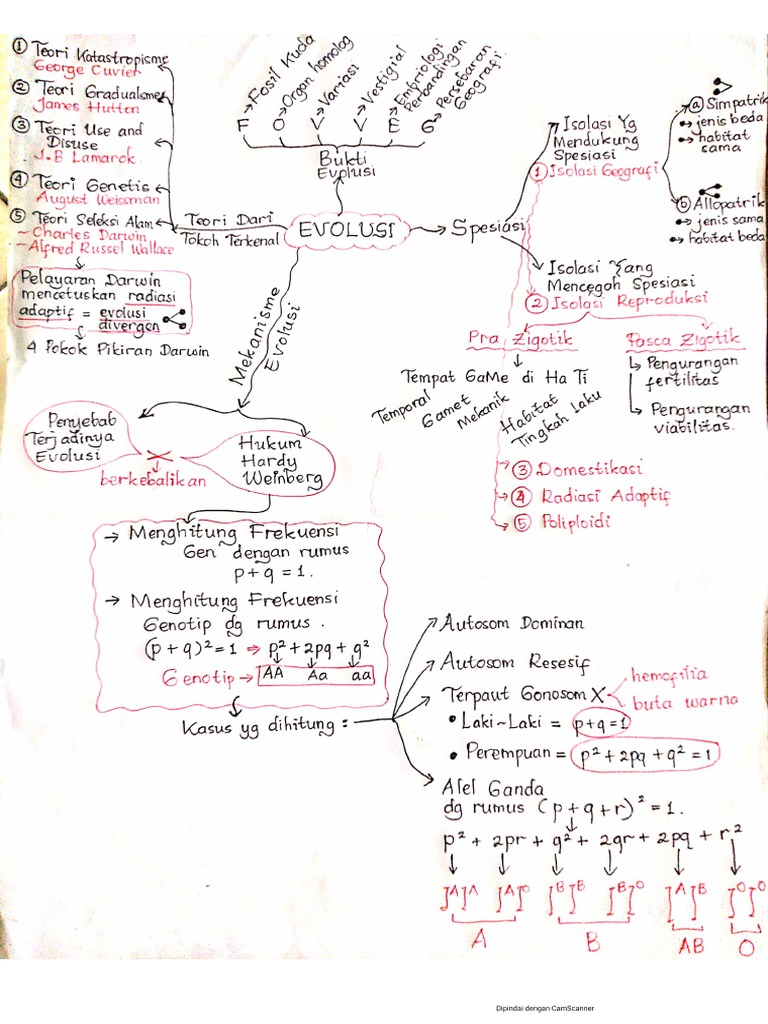 ① Teori Katastropisme
George Cuvier
② Teori Gradualisme
James Hutton
③ Teori Use and
Disuse
J.B Lamarck
④ Teori Genetis
August Weissman
⑤ Teori Seleksi Alam
~ Charles Darwin
~ Alfred Russel Wallace
Pelayaran Darwin
mencetuskan radiasi
adaptif = evolusi
divergen
4 Pokok Pikiran Darwin
Teori Dari
Tokoh Terkenal
→ Fosil Kuda
→ Organ homolog
→ Variasi
→ Vestigial
→ Embriologi
Perbandingan
→ Persebaran
Geografi.
F O V V E G
Bukti
Evolusi
EVOLUSI
Spesiasi
Isolasi Yg
Mendukung
Spesiasi
① Isolasi Geografi
ⓐ Simpatrik
→ jenis beda
→ habitat
sama
ⓑ Allopatrik
→ jenis sama
→ habitat beda
Isolasi Yang
Mencegah Spesiasi
② Isolasi Reproduksi
Pra Zigotik
Tempat GaMe di Ha Ti
Temporal
Gamet
Mekanik
Habitat
Tingkah Laku
Pasca Zigotik
Pengurangan
fertilitas
Pengurangan
viabilitas.
③ Domestikasi
④ Radiasi Adaptif
⑤ Poliploidi
Mekanisme
Evolusi
Penyebab
Terjadinya
Evolusi
berkebalikan
Hukum
Hardy
Weinberg
→ Menghitung Frekuensi
Gen dengan rumus
p + q = 1.
→ Menghitung Frekuensi
Genotip dg rumus.
(p + q)² = 1 ⇒ p² + 2pq + q²
Genotip → AA Aa aa
Kasus yg dihitung :
Autosom Dominan
Autosom Resesif
Terpaut Gonosom X
hemofilia
buta warna
• Laki~Laki = p+q=1
• Perempuan = p² + 2pq + q² = 1
Alel Ganda
dg rumus (p + q + r)² = 1.
p² + 2pr + q² + 2qr + 2pq + r²
IᴬIᴬ IᴬIᴼ IᴮIᴮ IᴮIᴼ IᴬIᴮ IᴼIᴼ
A B AB O
Dipindai dengan CamScanner